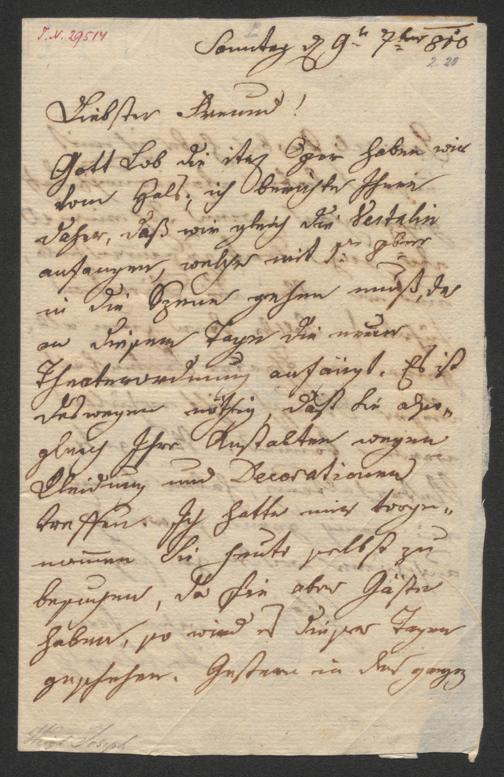 I.N. 29514
Sonntag d 9t 7ber 810
Liebster Freund!
Gott Lob die itz Oper haben wir
vom Hals; ich berichte Ihnen
daher, daß wir gleich die Vestalin
anfangen, welche mit 1ten 8ber
in die Szene gehen muß, da
an diesem Tage die neue
Theaterordnung anfängt. Es ist
deswegen nöthig, daß Sie also„
gleich Ihre Anstalten wegen
Kleidung und Decorationen
treffen. Ich hatte mir vorge„
nommen Sie heute selbst zu
besuchen, da Sie aber Gäste
haben, so wird es dieser Tagen
geschehen. Gestern in der
Joseph